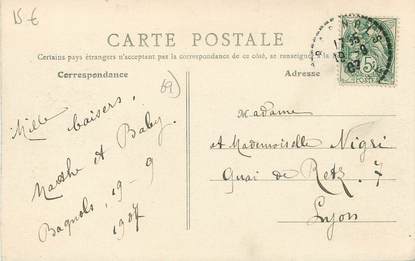 15 €
CARTE POSTALE
Certains pays étrangers n'acceptant pas la correspondance de ce côté, se renseigner à la
Correspondance
Adresse
69
5
POSTES
Mille baisers,
Marthe et Baby.
Bagnols, 19-9
1907
Madame
et Mademoiselle Nigri
Quai de Retz. 7
Lyon